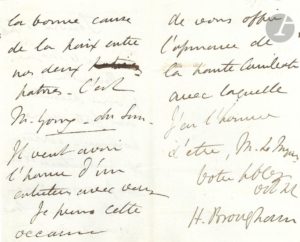 la bonne cause
de la paix entre
nos deux patries
patries. C'est
M.
Il veut avoir
l'honneur d'un
entretien avec vous
Je prens cette
occasion
de vous offrir
l'assurance de
la haute
avec laquelle
J'ai l'honneur
d'être, M. le
votre
H. Brougham